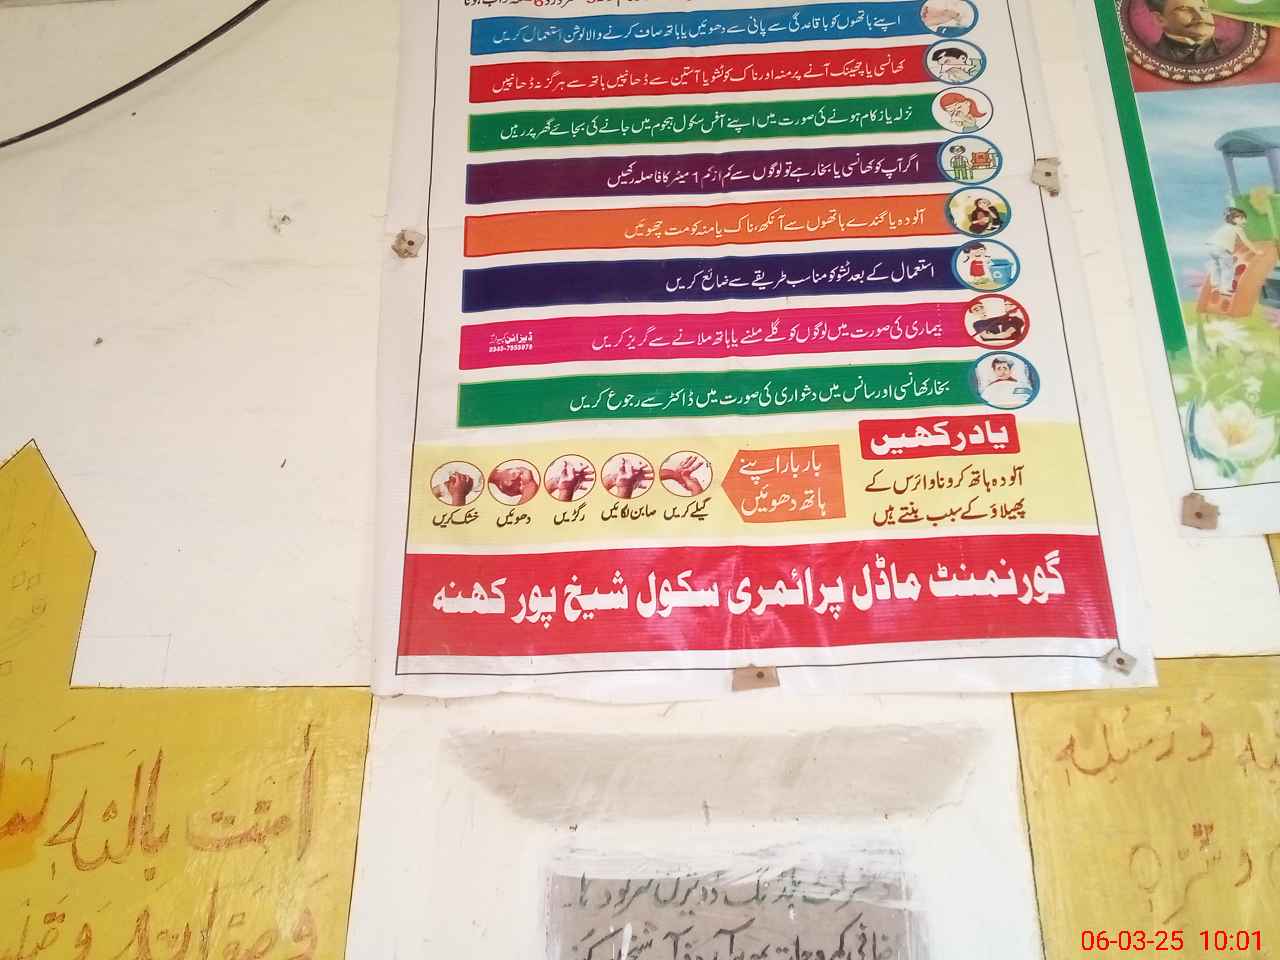 اپنے ہاتھوں کو باقاعدگی سے پانی سے دھوئیں یا ہاتھ صاف کرنے والا لوشن استعمال کریں
کھانسی یا چھینک آنے پر منہ اور ناک کو ٹشو یا آستین سے ڈھانپیں ہاتھ سے ہرگز نہ ڈھانپیں
نزلہ یا زکام ہونے کی صورت میں اپنے آفس سکول ہجوم میں جانے کی بجائے گھر پر رہیں
اگر آپ کو کھانسی یا بخار ہے تو لوگوں سے کم از کم 1 میٹر کا فاصلہ رکھیں
آلودہ یا گندے ہاتھوں سے آنکھ، ناک یا منہ کو مت چھوئیں
استعمال کے بعد ٹشو کو مناسب طریقے سے ضائع کریں
بیماری کی صورت میں لوگوں کو گلے ملنے یا ہاتھ ملانے سے گریز کریں
بخار کھانسی اور سانس میں دشواری کی صورت میں ڈاکٹر سے رجوع کریں
یاد رکھیں
آلودہ ہاتھ کرونا وائرس کے
پھیلاؤ کے سبب بنتے ہیں
بار بار اپنے
ہاتھ دھوئیں
گیلے کریں صابن لگائیں رگڑیں دھوئیں خشک کریں
گورنمنٹ ماڈل پرائمری سکول شیخ پور کھنہ
اٰمَنْتُ بِاللهِ
وَرُسُلِهٖ
06-03-25 10:01